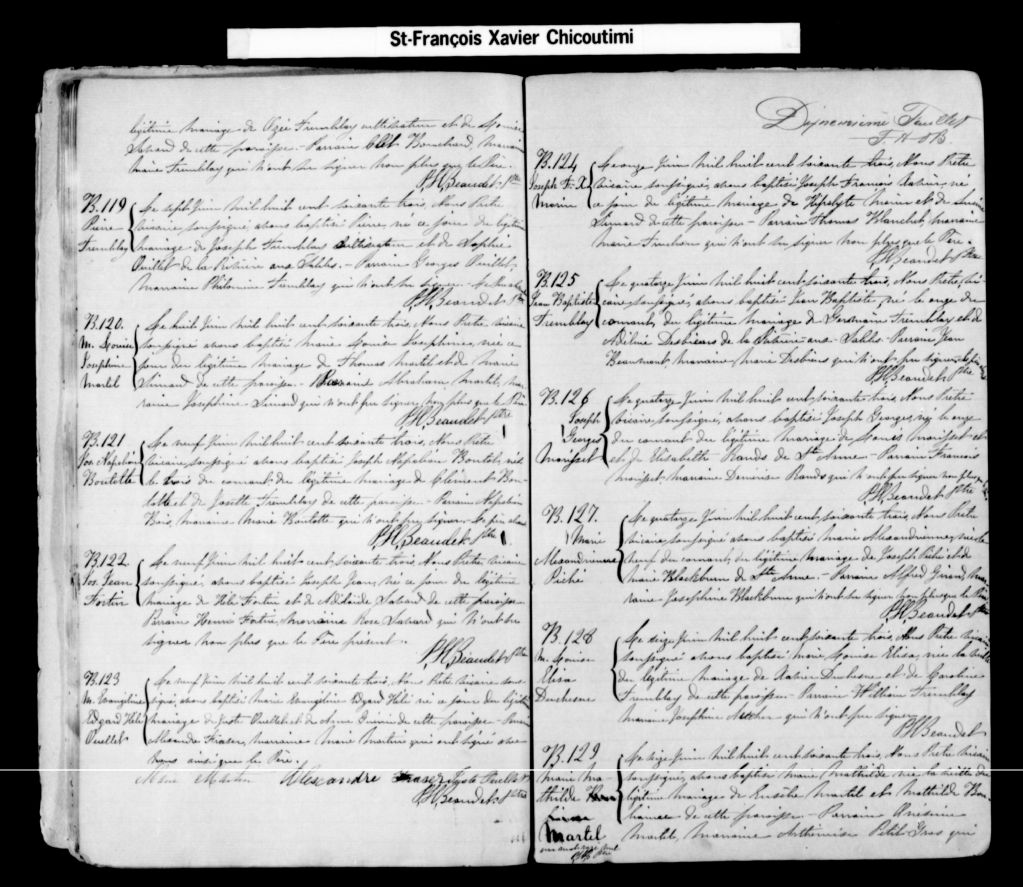 St-François Xavier Chicoutimi
légitime mariage de Ozée Tremblay cultivateur et de Louise
Savard de cette paroisse - Parrain Bouchard, marraine
Marie Tremblay qui n'ont su signer non plus que le Père.
P.H. Beaudet Ptre
B.119 Le sept Juin mil huit cent soixante trois, Nous Prêtre
Pierre vicaire soussigné, avons baptisé Pierre, né ce jour du légitime
Tremblay mariage de Joseph Tremblay cultivateur et de Sophie
Ouellet de la Rivière aux Sables. - Parrain Georges Ouellet,
Marraine Philomène Tremblay qui n'ont su signer
P.H. Beaudet Ptre
B.120. Le huit Juin mil huit cent soixante trois, Nous Prêtre vicaire
M. Louise soussigné avons baptisé Marie Louise Josephine, née ce
Josephine jour du légitime mariage de Thomas Martel et de Marie
Martel Simard de cette paroisse - Parrain Abraham Martel, mar-
raine Josephine Simard qui n'ont pu signer non plus que le Père
P.H. Beaudet Ptre
B.121 Le neuf Juin mil huit cent soixante trois, Nous Prêtre
Jos. Napoléon vicaire soussigné avons baptisé Joseph Napoléon Boutot, né
Boutotte le trois du courant du légitime mariage de Clément Bou-
totte et de Josette Tremblay de cette paroisse - Parrain Napoléon
Bois, marraine Marie Boutotte qui n'ont pu signer
P.H. Beaudet Ptre
B.122 Le neuf Juin mil huit cent soixante trois, Nous Prêtre vicaire
Jos. Jean soussigné, avons baptisé Joseph Jean, né ce jour du légitime
Fortin mariage de Héli Fortin et de Adélaïde Savard de cette paroisse
Parrain Henri Fortin, marraine Rose Savard qui n'ont su
signer non plus que le Père présent.
P.H. Beaudet Ptre
B.123 Le neuf Juin mil huit cent soixante trois, Nous Prêtre vicaire sous-
M. Evangéline signé, avons baptisé Marie Evangéline Edgard Héli né ce jour du légitime
Edgard Héli mariage de Juste Ouellet et de Anne de cette paroisse - Parrain
Ouellet Alexandre Fraser, marraine Marie Martin qui ont signé avec
nous ainsi que le Père.
Marie Martin Alexandre Fraser Juste Ouellet
P.H. Beaudet Ptre
Dixneuvième Feuillet
B.124 Le onze Juin mil huit cent soixante trois, Nous Prêtre
Joseph F. X. vicaire soussigné, avons baptisé Joseph François Xavier, né
Morin ce jour du légitime mariage de Hipolyte Morin et de
Simard de cette paroisse - Parrain Thomas Blanchet, marraine
Marie qui n'ont su signer non plus que le Père.
P.H. Beaudet Ptre
B.125 Le quatorze Juin mil huit cent soixante trois, Nous Prêtre, vi-
Jean Baptiste caire soussigné, avons baptisé Jean Baptiste, né le onze du
Tremblay courant, du légitime mariage de Germain Tremblay et de
Adeline Desbiens de la Rivière aux Sables - Parrain Jean
Beaumont, marraine Marie Desbiens qui n'ont pu signer
P.H. Beaudet Ptre
B.126 Le quatorze Juin mil huit cent soixante trois, Nous Prêtre
Joseph vicaire soussigné, avons baptisé Joseph Georges, né le onze
Georges du courant du légitime mariage de Louis et
et de Elisabeth de Ste Anne - Parrain François
marraine qui n'ont pu signer non plus
P.H. Beaudet Ptre
B.127. Le quatorze Juin mil huit cent soixante trois, Nous Prêtre
Marie vicaire soussigné avons baptisé Marie Alexandrienne, née le
Alexandrienne neuf du courant, du légitime mariage de Joseph Piché et de
Piché Marie Blackburn de Ste Anne. - Parrain Alfred Girard, mar-
raine Josephine Blackburn qui n'ont su signer non plus que le Père
P.H. Beaudet Ptre
B.128 Le seize Juin mil huit cent soixante trois, Nous Prêtre vicaire
M. Louise soussigné avons baptisé Marie Louise Elisa, née la veille
Elisa du légitime mariage de Xavier Duchesne et de Caroline
Duchesne Tremblay de cette paroisse - Parrain William Tremblay
Marraine Josephine qui n'ont pu signer
P.H. Beaudet
B.129 Le seize Juin mil huit cent soixante trois, Nous Prêtre vicaire
Marie Ma- soussigné, avons baptisé Marie Mathilde née la veille du
thilde légitime mariage de Eusèbe Martel et Mathilde
de cette paroisse - Parrain Onésime
Martel Martel, marraine Arthémise Petit Gras qui